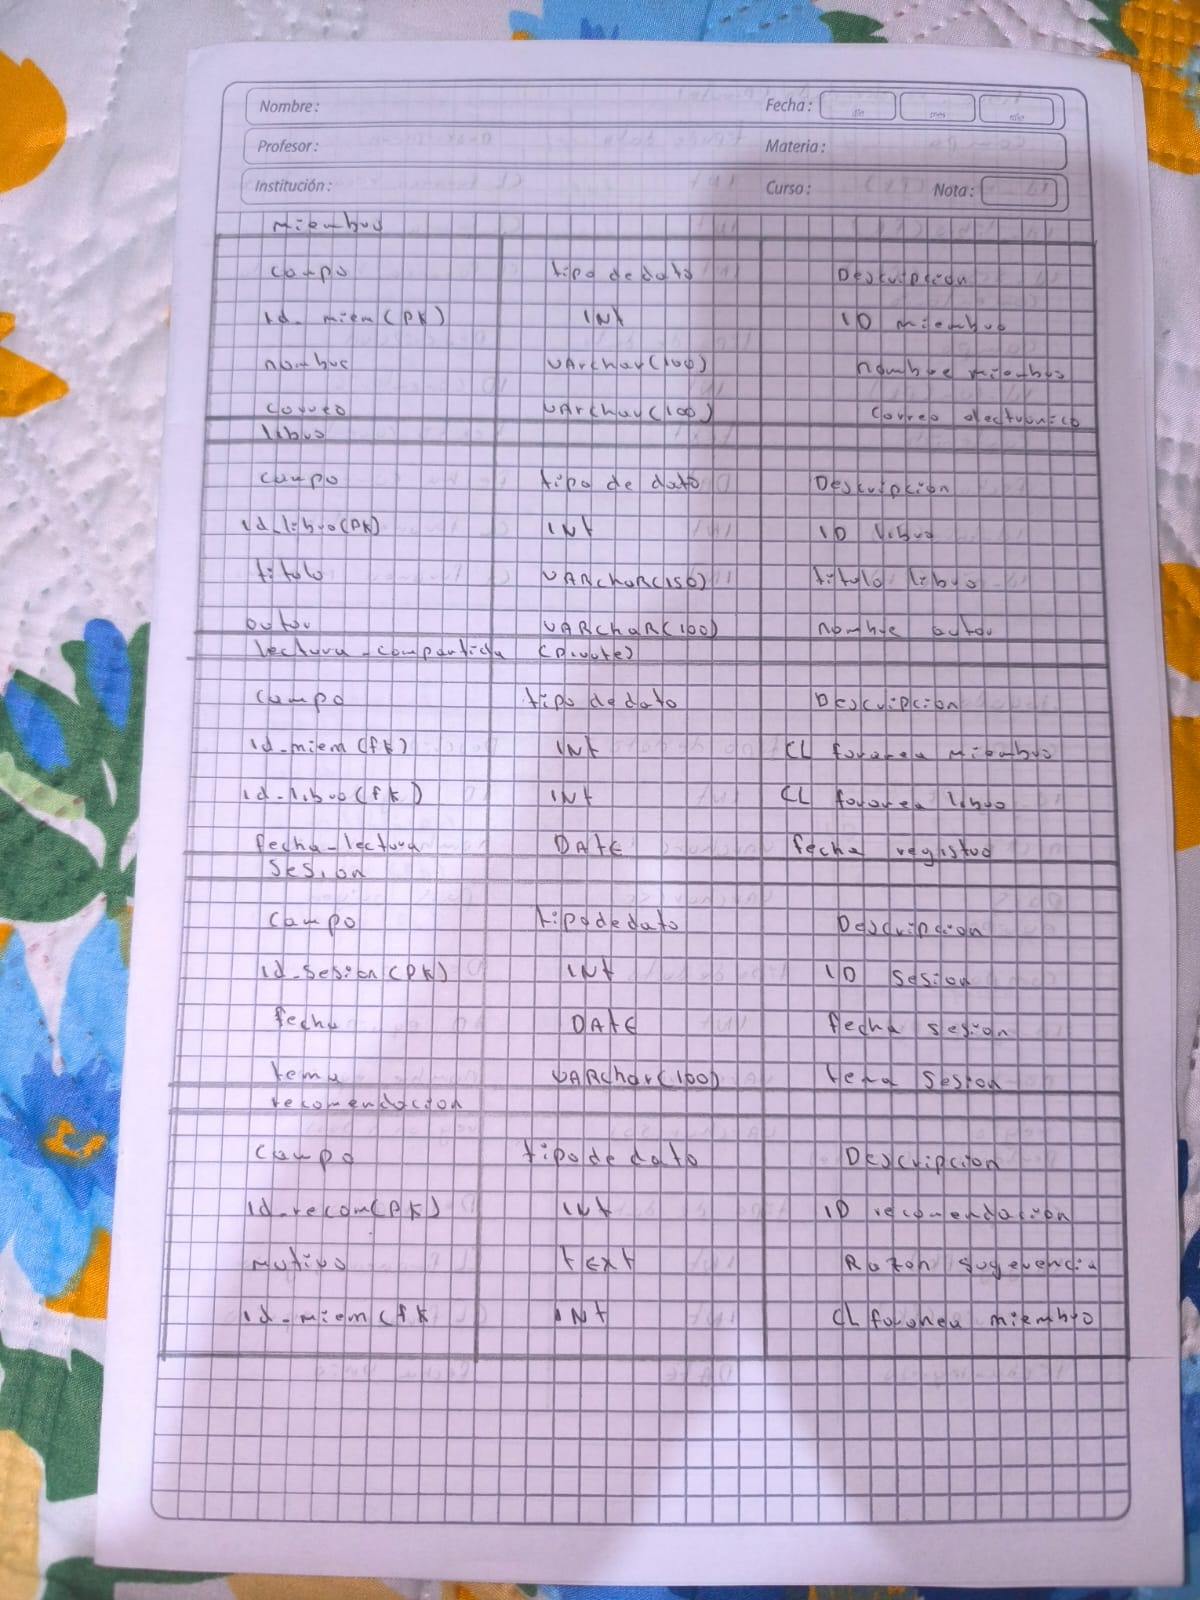 Nombre: Fecha: día mes año
Profesor: Materia:
Institución: Curso: Nota:
miembro
campo tipo de dato Descripcion
id_miem(PK) INt ID miembro
nombre VArchar(100) nombre miembro
correo VArchar(100) Correo electronico
libro
campo tipo de dato Descripcion
id_libro(PK) INt ID libro
titulo VARchaR(150) titulo libro
autor VARchaR(100) nombre autor
lectura_compartida (Pivote)
campo tipo de dato Descripcion
id_miem(fk) INt CL foranea miembro
id_libro(fk) INt CL foranea libro
fecha_lectura DAtE fecha registro
Sesion
campo tipo de dato Descripcion
id_sesion(PK) INt ID Sesion
fecha DAtE fecha sesion
tema VARchar(100) tema Sesion
recomendacion
campo tipo de dato Descripcion
id_recom(PK) INt ID recomendacion
motivo tEXt Razon sugerencia
id_miem(fk INt CL foranea miembro